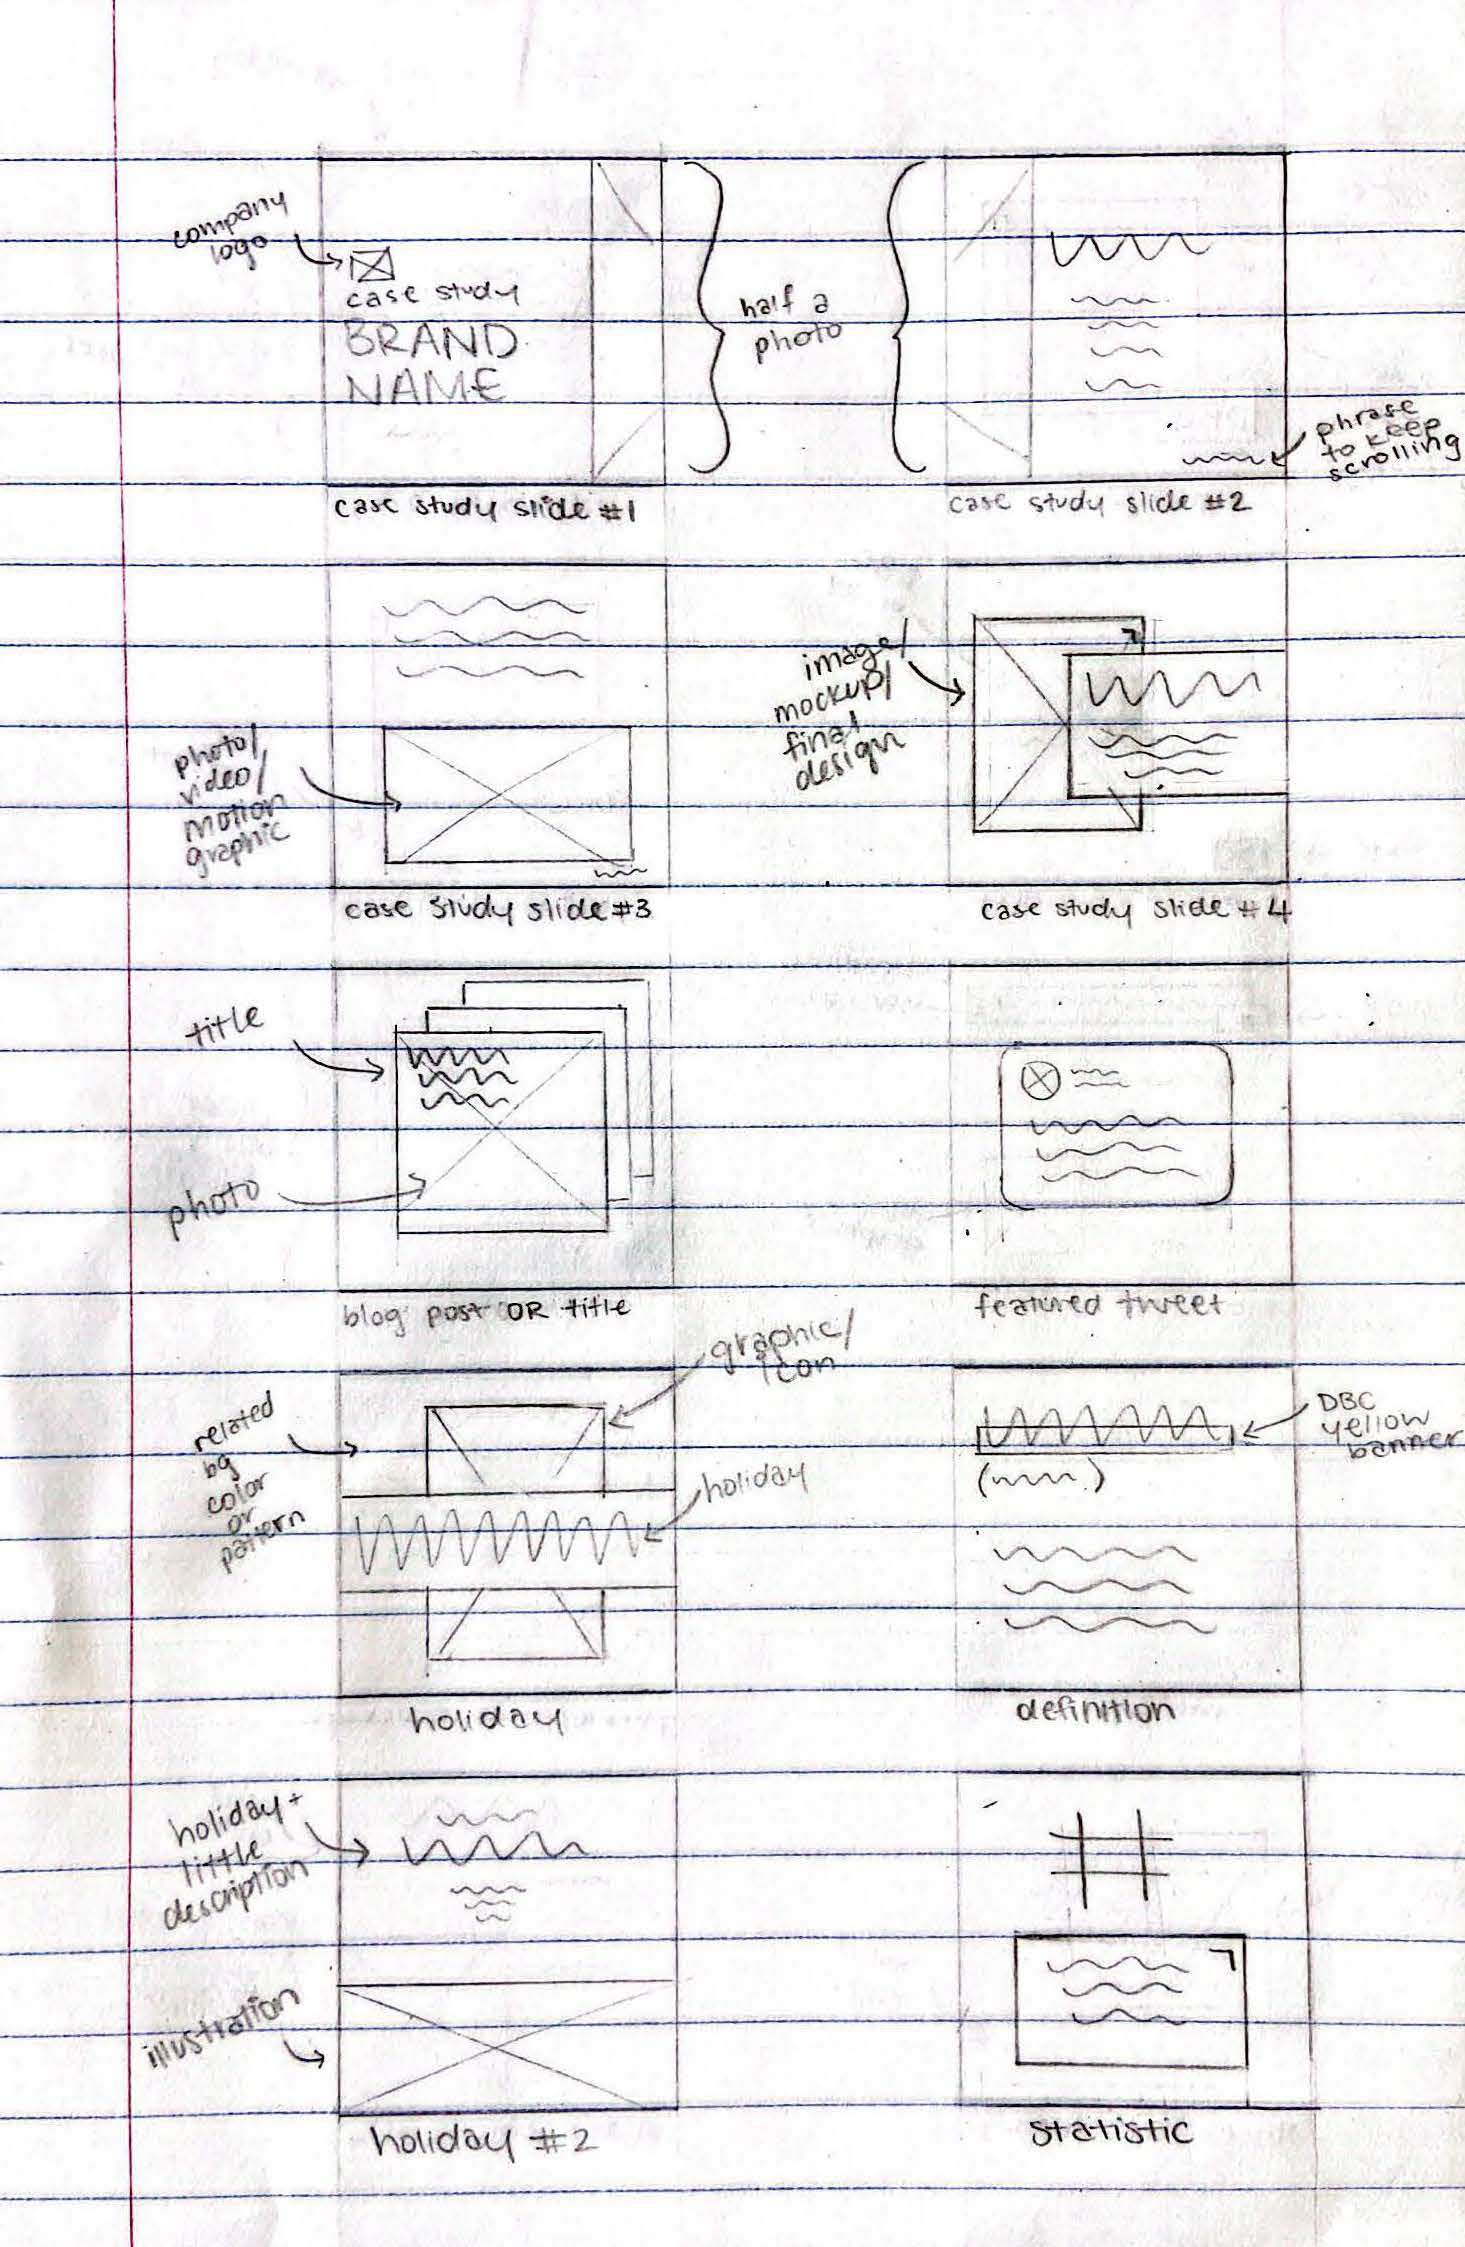 company
logo
case study
BRAND
NAME
half a
photo
phrase
to keep
scrolling
case study slide #1
case study slide #2
photo/
video/
motion
graphic
image/
mockup/
final
design
case study slide #3
case study slide #4
title
photo
blog post OR title
featured tweet
related
bg
color
or
pattern
graphic/
icon
holiday
DBC
yellow
banner
holiday
definition
holiday +
little
description
illustration
#
holiday #2
statistic